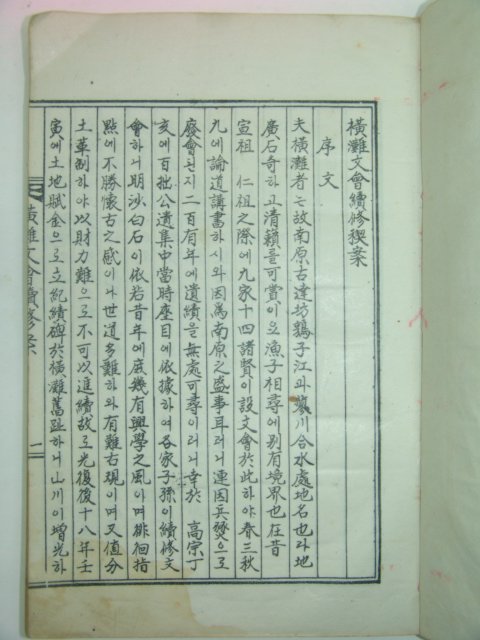 橫灘文會續修稧案
序文
夫橫灘者는故南原古達坊鶉子江과寥川合水處地名也라地
廣石奇하고淸籟를可賞이오漁子相尋에別有境界也라在昔
宣祖 仁祖之際에九家十四諸賢이設文會於此하야春三秋
九에論道講書하시와因爲南原之盛事耳러니連因兵燹으로
廢會된지二百有年에遺績을無處可尋이러니幸於 高宗丁
亥에百拙公遺集中當時座目에依據하여各家子孫이續修文
會하니明沙白石이依若昔年에庶幾有興學之風이며徘徊指
點에不勝懷古之感이나世道多難하와有難右規이며又值分
土革制하야以財力難으로不可以進續故로光復後十八年壬
寅에土地賦金으로立紀績碑於橫灘舊趾하니山川이增光하
橫灘文會續修案 一